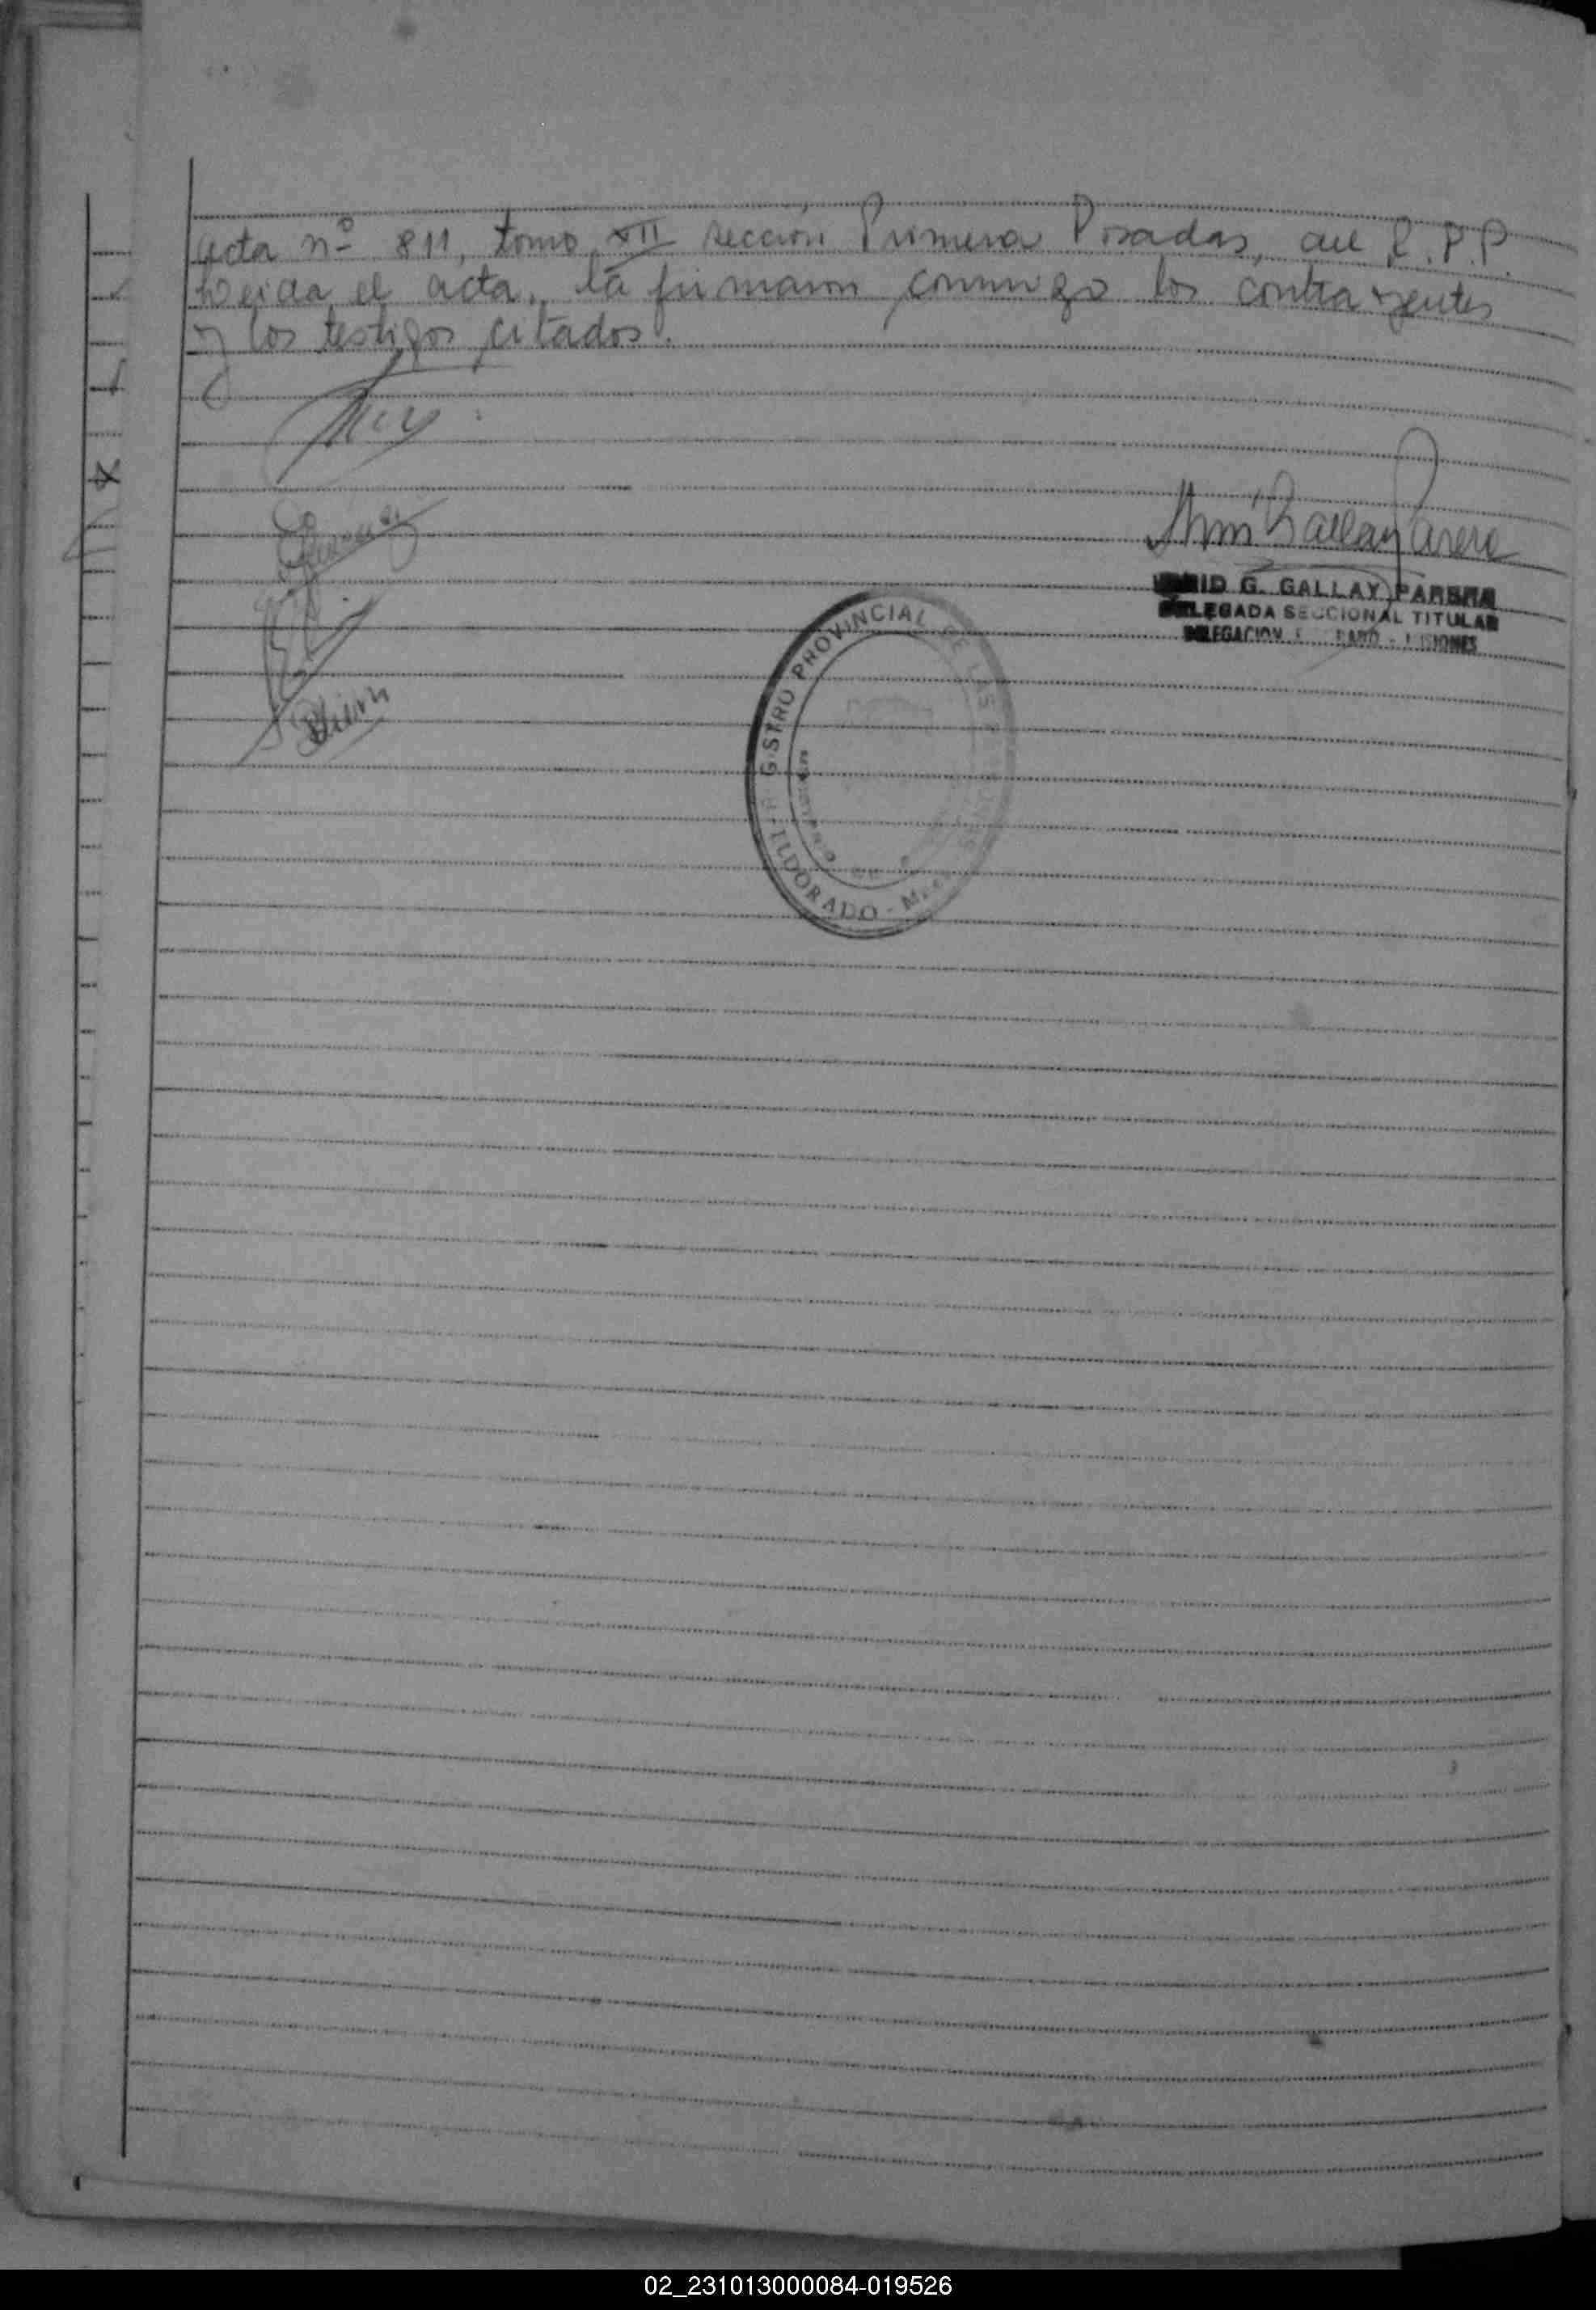 acta nº 811, tomo XII sección Primera Posadas, del R.P.P.
Leida el acta, la firmaron conmigo los contrayentes
y los testigos citados.
G. GALLAY PARERA
DELEGADA SECCIONAL TITULAR
DELEGACION - MISIONES
REGISTRO PROVINCIAL DE LAS
ELDORADO - Mnes
02_231013000084-019526